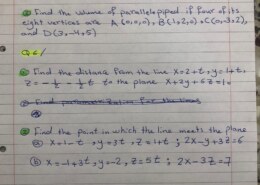 ① Find the volume of parallelepiped if four of its
eight vertices are A (0,0,0), B(1,2,0), C(0,-3,2),
and D(3,-4,5)
Q6/
① Find the distance from the line x=2+t, y=1+t,
z=-½-½t to the plane x+2y+6z=10
② Find the point in which the line meets the plane
ⓐ x=1-t, y=3t, z=1+t ; 2x-y+3z=6
ⓑ x=-1+3t, y=-2, z=5t ; 2x-3z=7